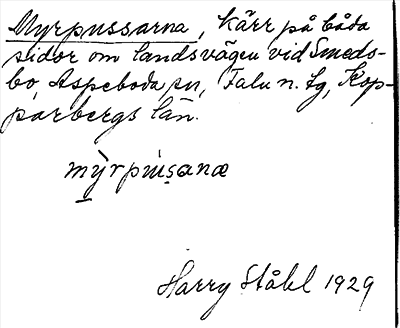 Myrpussarna, kärr på båda
sidor om landsvägen vid Smeds-
bo, Aspeboda sn, Falu n. tg, Kop-
parbergs län.
mỳrpùsanæ
Harry Ståhl 1929